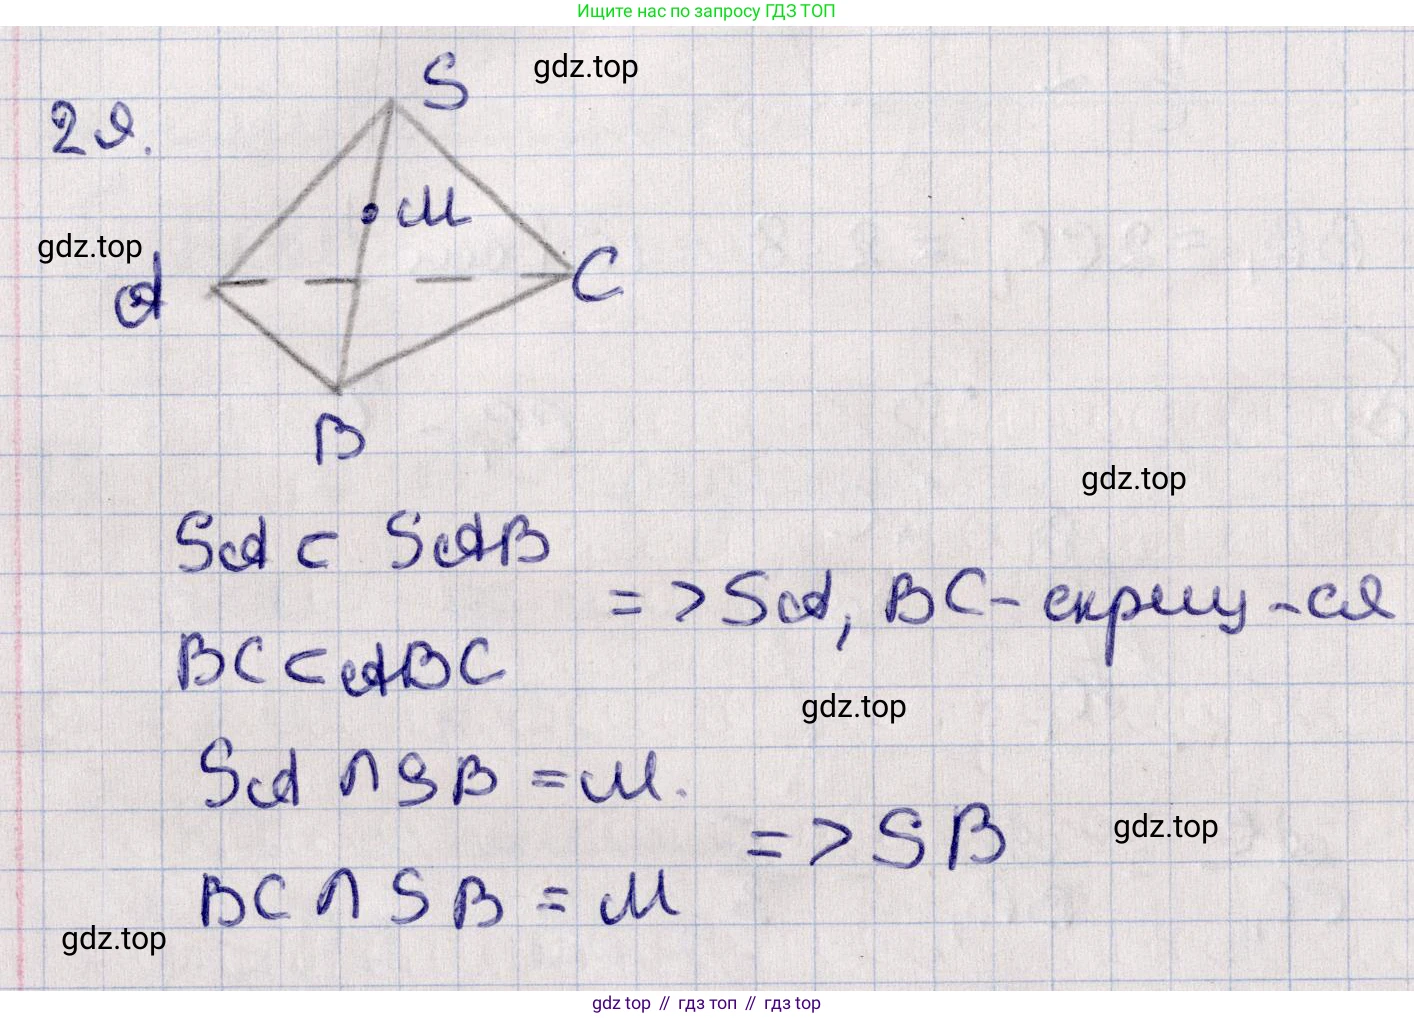 Ищите нас по запросу ГДЗ ТОП
S
gdz.top
29.
M
gdz.top
A
C
B
gdz.top
SA ⊂ SAB
=> SA, BC - скрещ-ся
BC ⊂ ABC
gdz.top
SA ∩ SB = M.
=> SB
gdz.top
BC ∩ SB = M
gdz.top
gdz top // гдз топ // gdz top